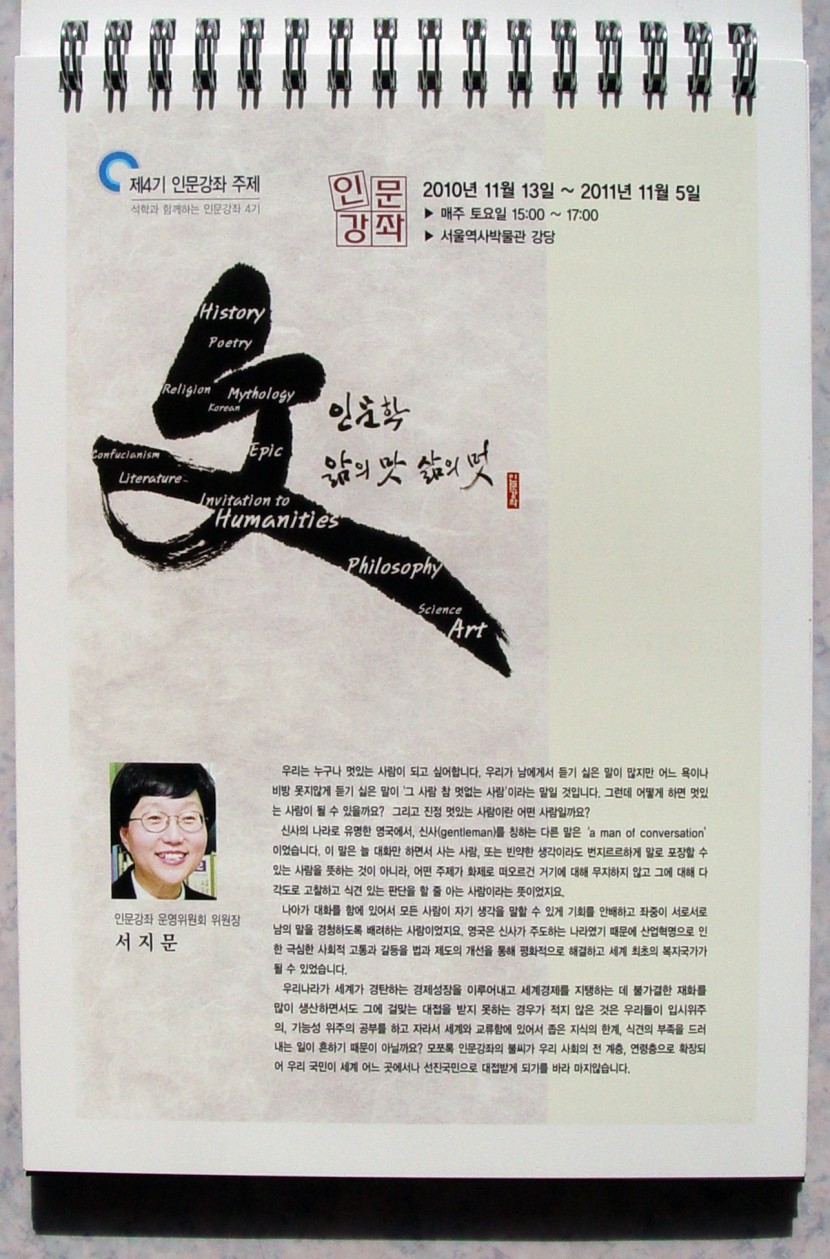 제4기 인문강좌 주제
석학과 함께하는 인문강좌 4기
인문
강좌
2010년 11월 13일 ~ 2011년 11월 5일
▶ 매주 토요일 15:00 ~ 17:00
▶ 서울역사박물관 강당
History
Poetry
Religion
Mythology
Korean
Confucianism
Epic
Literature
Invitation to
Humanities
Philosophy
Science
Art
인문학
앎의 맛 삶의 멋
인문강좌
우리는 누구나 멋있는 사람이 되고 싶어합니다. 우리가 남에게서 듣기 싫은 말이 많지만 어느 욕이나
비방 못지않게 듣기 싫은 말이 '그 사람 참 멋없는 사람'이라는 말일 것입니다. 그런데 어떻게 하면 멋있
는 사람이 될 수 있을까요? 그리고 진정 멋있는 사람이란 어떤 사람일까요?
신사의 나라로 유명한 영국에서, 신사(gentleman)를 칭하는 다른 말은 'a man of conversation'
이었습니다. 이 말은 늘 대화만 하면서 사는 사람, 또는 빈약한 생각이라도 번지르르하게 말로 포장할 수
있는 사람을 뜻하는 것이 아니라, 어떤 주제가 화제로 떠오르건 거기에 대해 무지하지 않고 그에 대해 다
각도로 고찰하고 식견 있는 판단을 할 줄 아는 사람이라는 뜻이었지요.
나아가 대화를 함에 있어서 모든 사람이 자기 생각을 말할 수 있게 기회를 안배하고 좌중이 서로서로
남의 말을 경청하도록 배려하는 사람이었지요. 영국은 신사가 주도하는 나라였기 때문에 산업혁명으로 인
한 극심한 사회적 고통과 갈등을 법과 제도의 개선을 통해 평화적으로 해결하고 세계 최초의 복지국가가
될 수 있었습니다.
우리나라가 세계가 경탄하는 경제성장을 이루어내고 세계경제를 지탱하는 데 불가결한 재화를
많이 생산하면서도 그에 걸맞는 대접을 받지 못하는 경우가 적지 않은 것은 우리들이 입시위주
의, 기능성 위주의 공부를 하고 자라서 세계와 교류함에 있어서 좁은 지식의 한계, 식견의 부족을 드러
내는 일이 흔하기 때문이 아닐까요? 모쪼록 인문강좌의 불씨가 우리 사회의 전 계층, 연령층으로 확장되
어 우리 국민이 세계 어느 곳에서나 선진국민으로 대접받게 되기를 바라 마지않습니다.
인문강좌 운영위원회 위원장
서 지 문